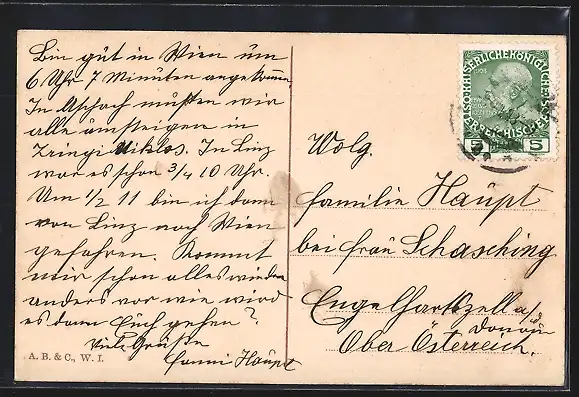 Bin gut in Wien um
6 Uhr 7 Minuten angekommen
In Aschach mußten wir
alle umsteigen in
Zringi Niklos. In Linz
war es schon 3/4 10 Uhr.
Um 1/2 11 bin ich dann
von Linz nach Wien
gefahren. Kommt
mir schon alles wieder
anders vor wie wird
es dann Euch gehen?
Viele Grüße
Fanni Haupt
A. B. & C., W. I.
KAISERLICHEKÖNIGLICHE
ÖSTERREICHISCHE
1908
5 5
Wolg.
Familie Haupt
bei Frau Schasching
Engelhartszell a/d
Donau
Ober Österreich.